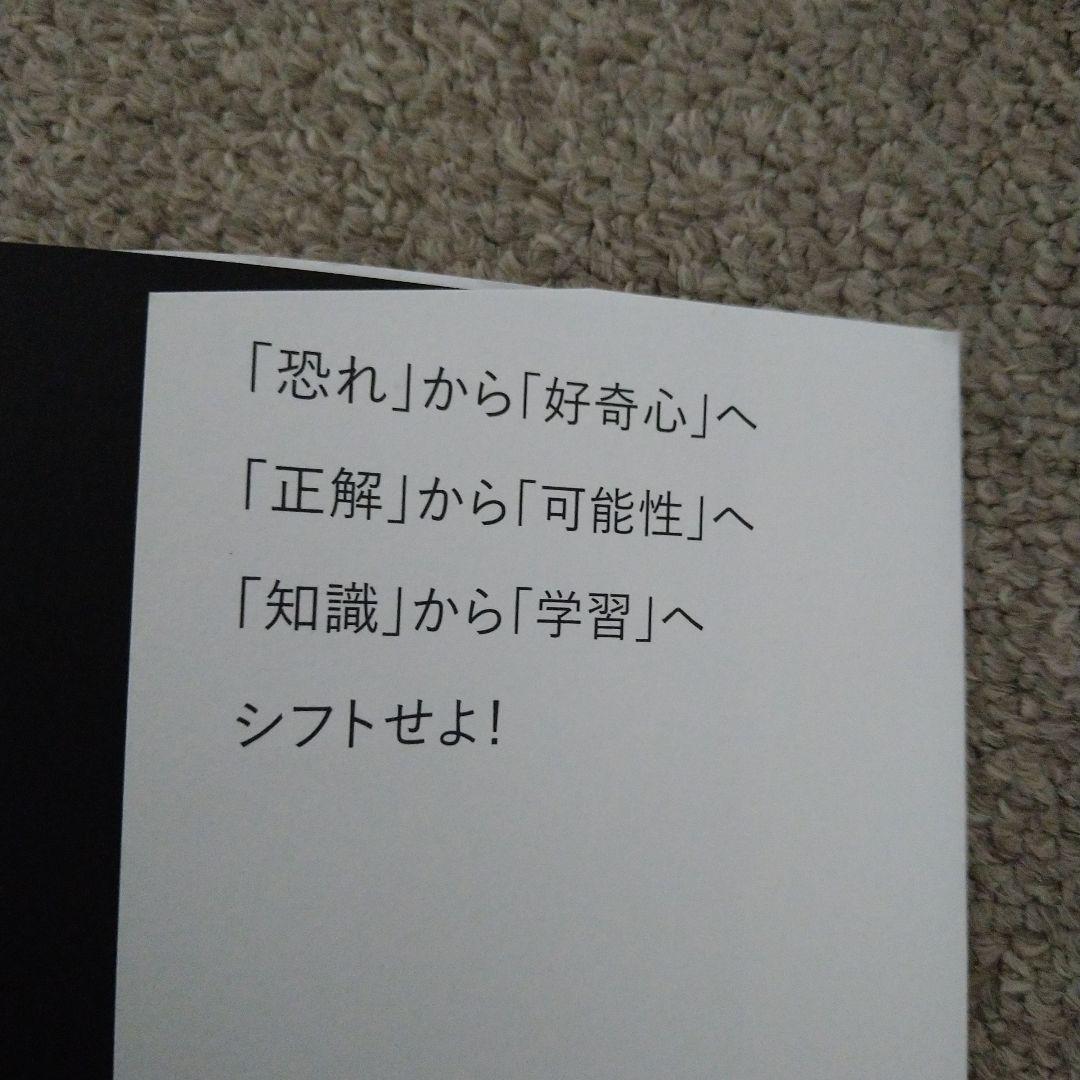 「恐れ」から「好奇心」へ
「正解」から「可能性」へ
「知識」から「学習」へ
シフトせよ!